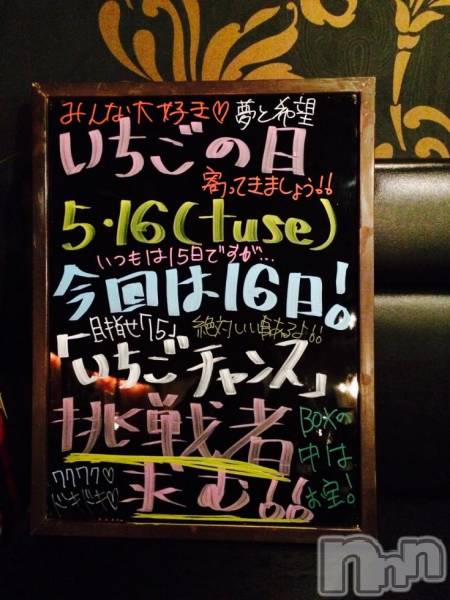 みんな大好き♡夢と希望
いちごの日
寄ってきましょう!!
5・16(tuse)
いつもは15日ですが…
今回は16日!
目指せ75」 絶対いい事あるよ!!
「いちごチャンス」
挑戦者
求む!!
BOXの
中は
お宝!
ワクワク♡
ドキドキ♡
nnn